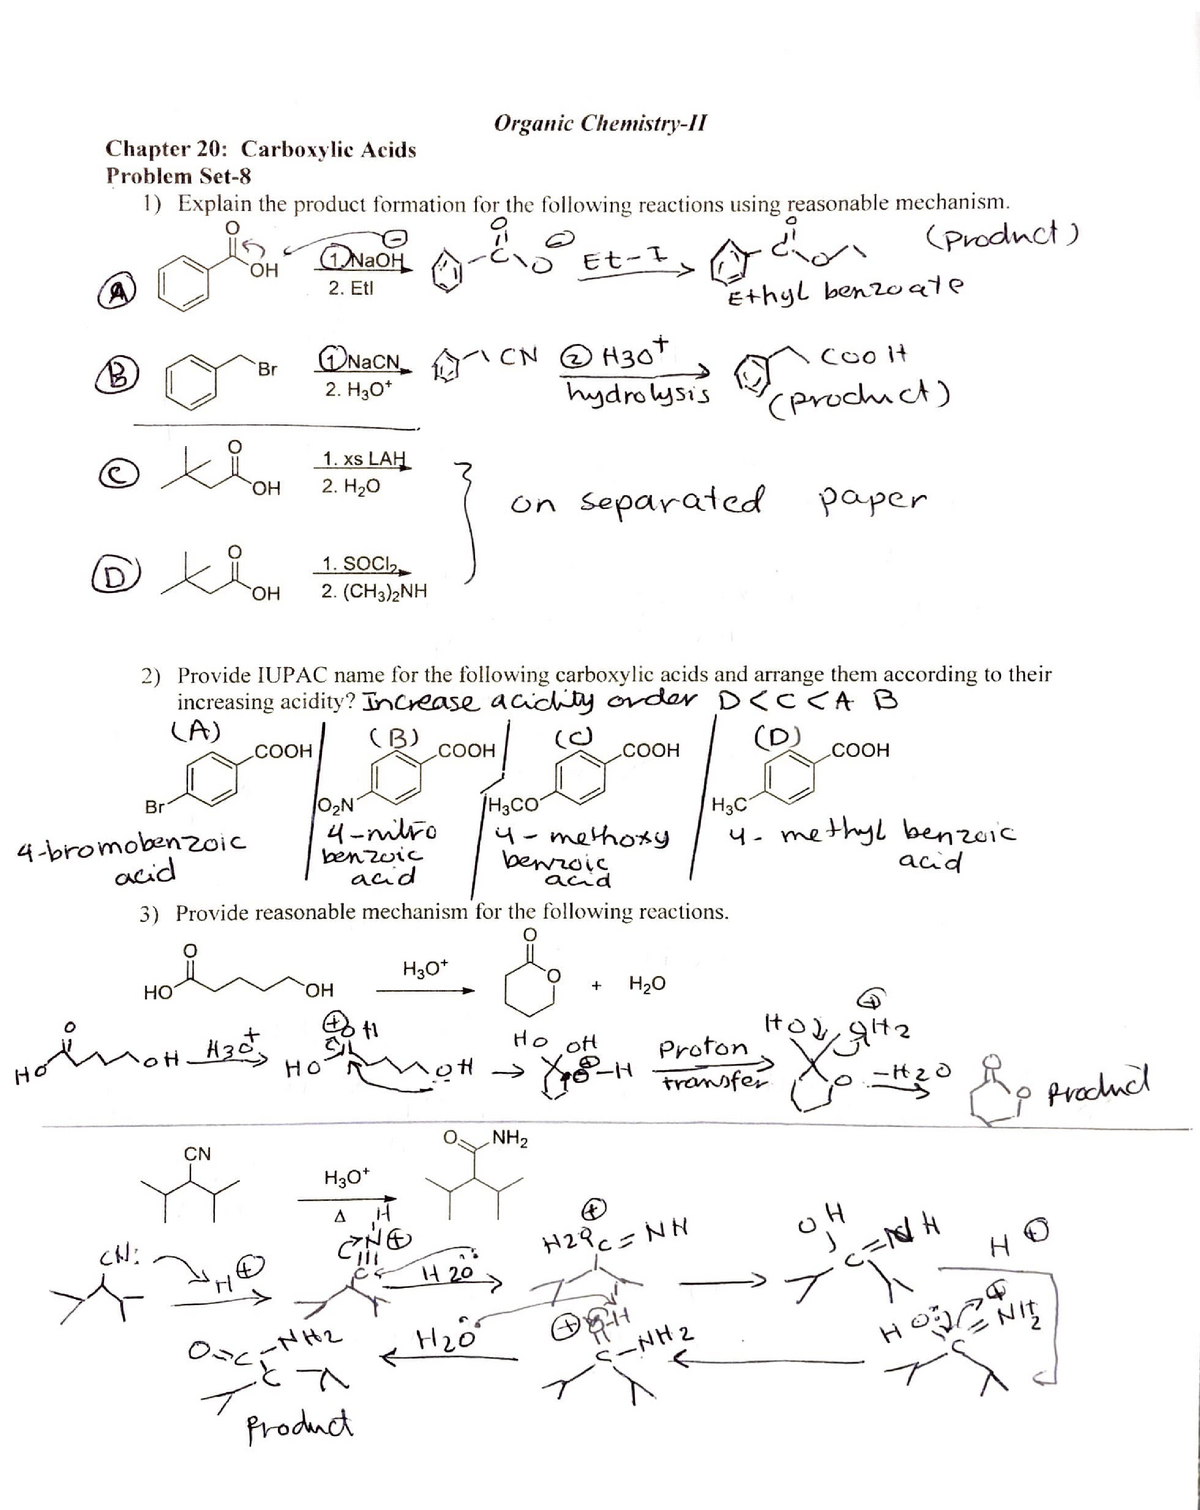 Organic Chemistry-II
Chapter 20: Carboxylic Acids
Problem Set-8
1) Explain the product formation for the following reactions using reasonable mechanism.
A O OH
1. NaOH
2. EtI
O C O ⊖ Et-I O C O (Product)
Ethyl benzoate
B Br
1. NaCN
2. H3O+
CN ② H3O+ COOH
hydrolysis (product)
C O OH
1. xs LAH
2. H2O
on separated paper
D O OH
1. SOCl2
2. (CH3)2NH
2) Provide IUPAC name for the following carboxylic acids and arrange them according to their
increasing acidity? Increase acidity order D<C<A B
(A) (B) (C) (D)
COOH COOH COOH COOH
Br O2N H3CO H3C
4-bromobenzoic acid
4-nitro benzoic acid
4-methoxy benzoic acid
4-methyl benzoic acid
3) Provide reasonable mechanism for the following reactions.
O HO OH H3O+ O O + H2O
O HO OH H3O+ ⊕OH HO OH → HO OH ⊕O-H Proton transfer HO OH2 ⊕ O -H2O O O Product
CN H3O+ Δ O NH2
CN: H⊕ H N⊕ C H2O ⊕ H2O C=NH → OH C=NH H⊕
HO C=NH2 ⊕
⊕O-H C-NH2 H2O O=C-NH2 C
Product